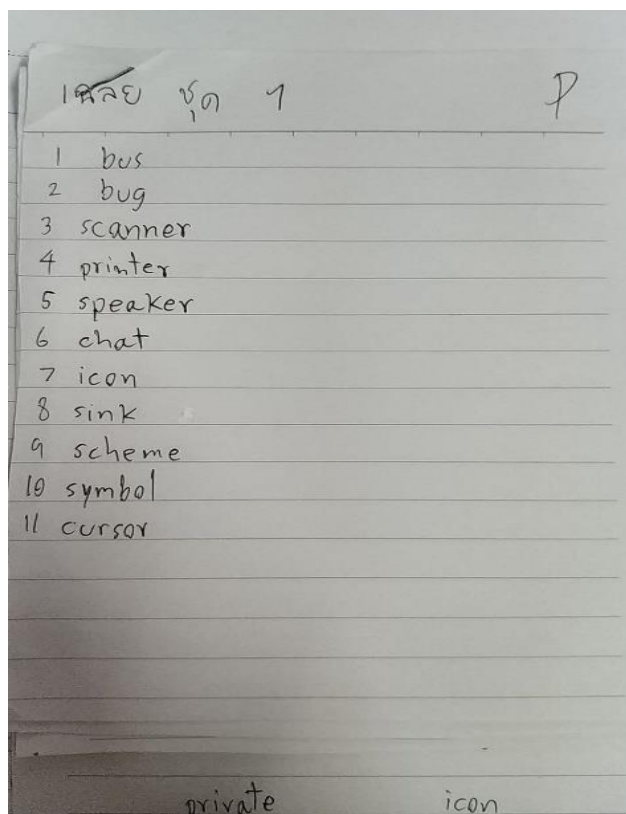 เฉลย ชุด 1 P
1 bus
2 bug
3 scanner
4 printer
5 speaker
6 chat
7 icon
8 sink
9 scheme
10 symbol
11 cursor
private icon